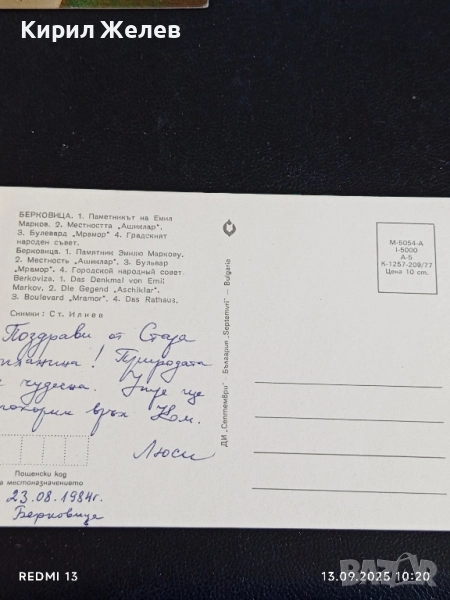 Кирил Желев
БЕРКОВИЦА. 1. Паметникът на Емил
Марков. 2. Местността „Ашиклар".
3. Булевард „Мрамор" 4. Градският
народен съвет.
Берковица. 1. Памятник Эмилю Маркову.
2. Местность „Ашиклар". 3. Бульвар
„Мрамор". 4. Городской народный совет.
Berkoviza. 1. Das Denkmal von Emil
Markov. 2. Die Gegend „Aschiklar".
3. Boulevard „Mramor". 4. Das Rathaus.
Снимки: Ст. Илиев
Поздрави от Стара
планина! Природата
е чудесна. Утре ще
покорим връх Ком.
Люси
Пощенски код
на местоназначението
23.08.1984г.
Берковица
ДИ „Септември" – България „Septemvri" – Bulgaria
М-5054-А
I-5000
А-5
К-1257-209/77
Цена 10 ст.
REDMI 13
13.09.2025 10:20
BAZAR